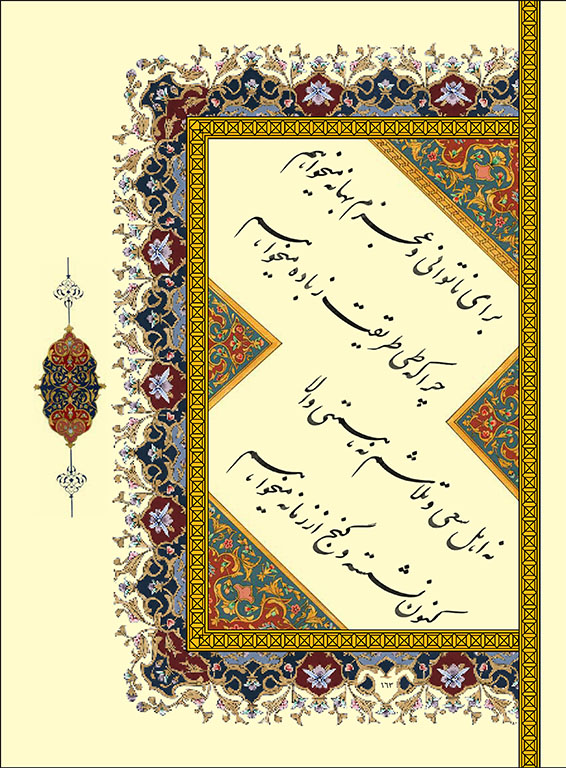 برای ناتوانی و عجزم بهانه میخواهم
چرا که طی طریقت زباده میخواهم
نه اهل سعی و تلاشم نه هستی والا
کنون نشسته و گنج از زمانه میخواهم
۱۶۳